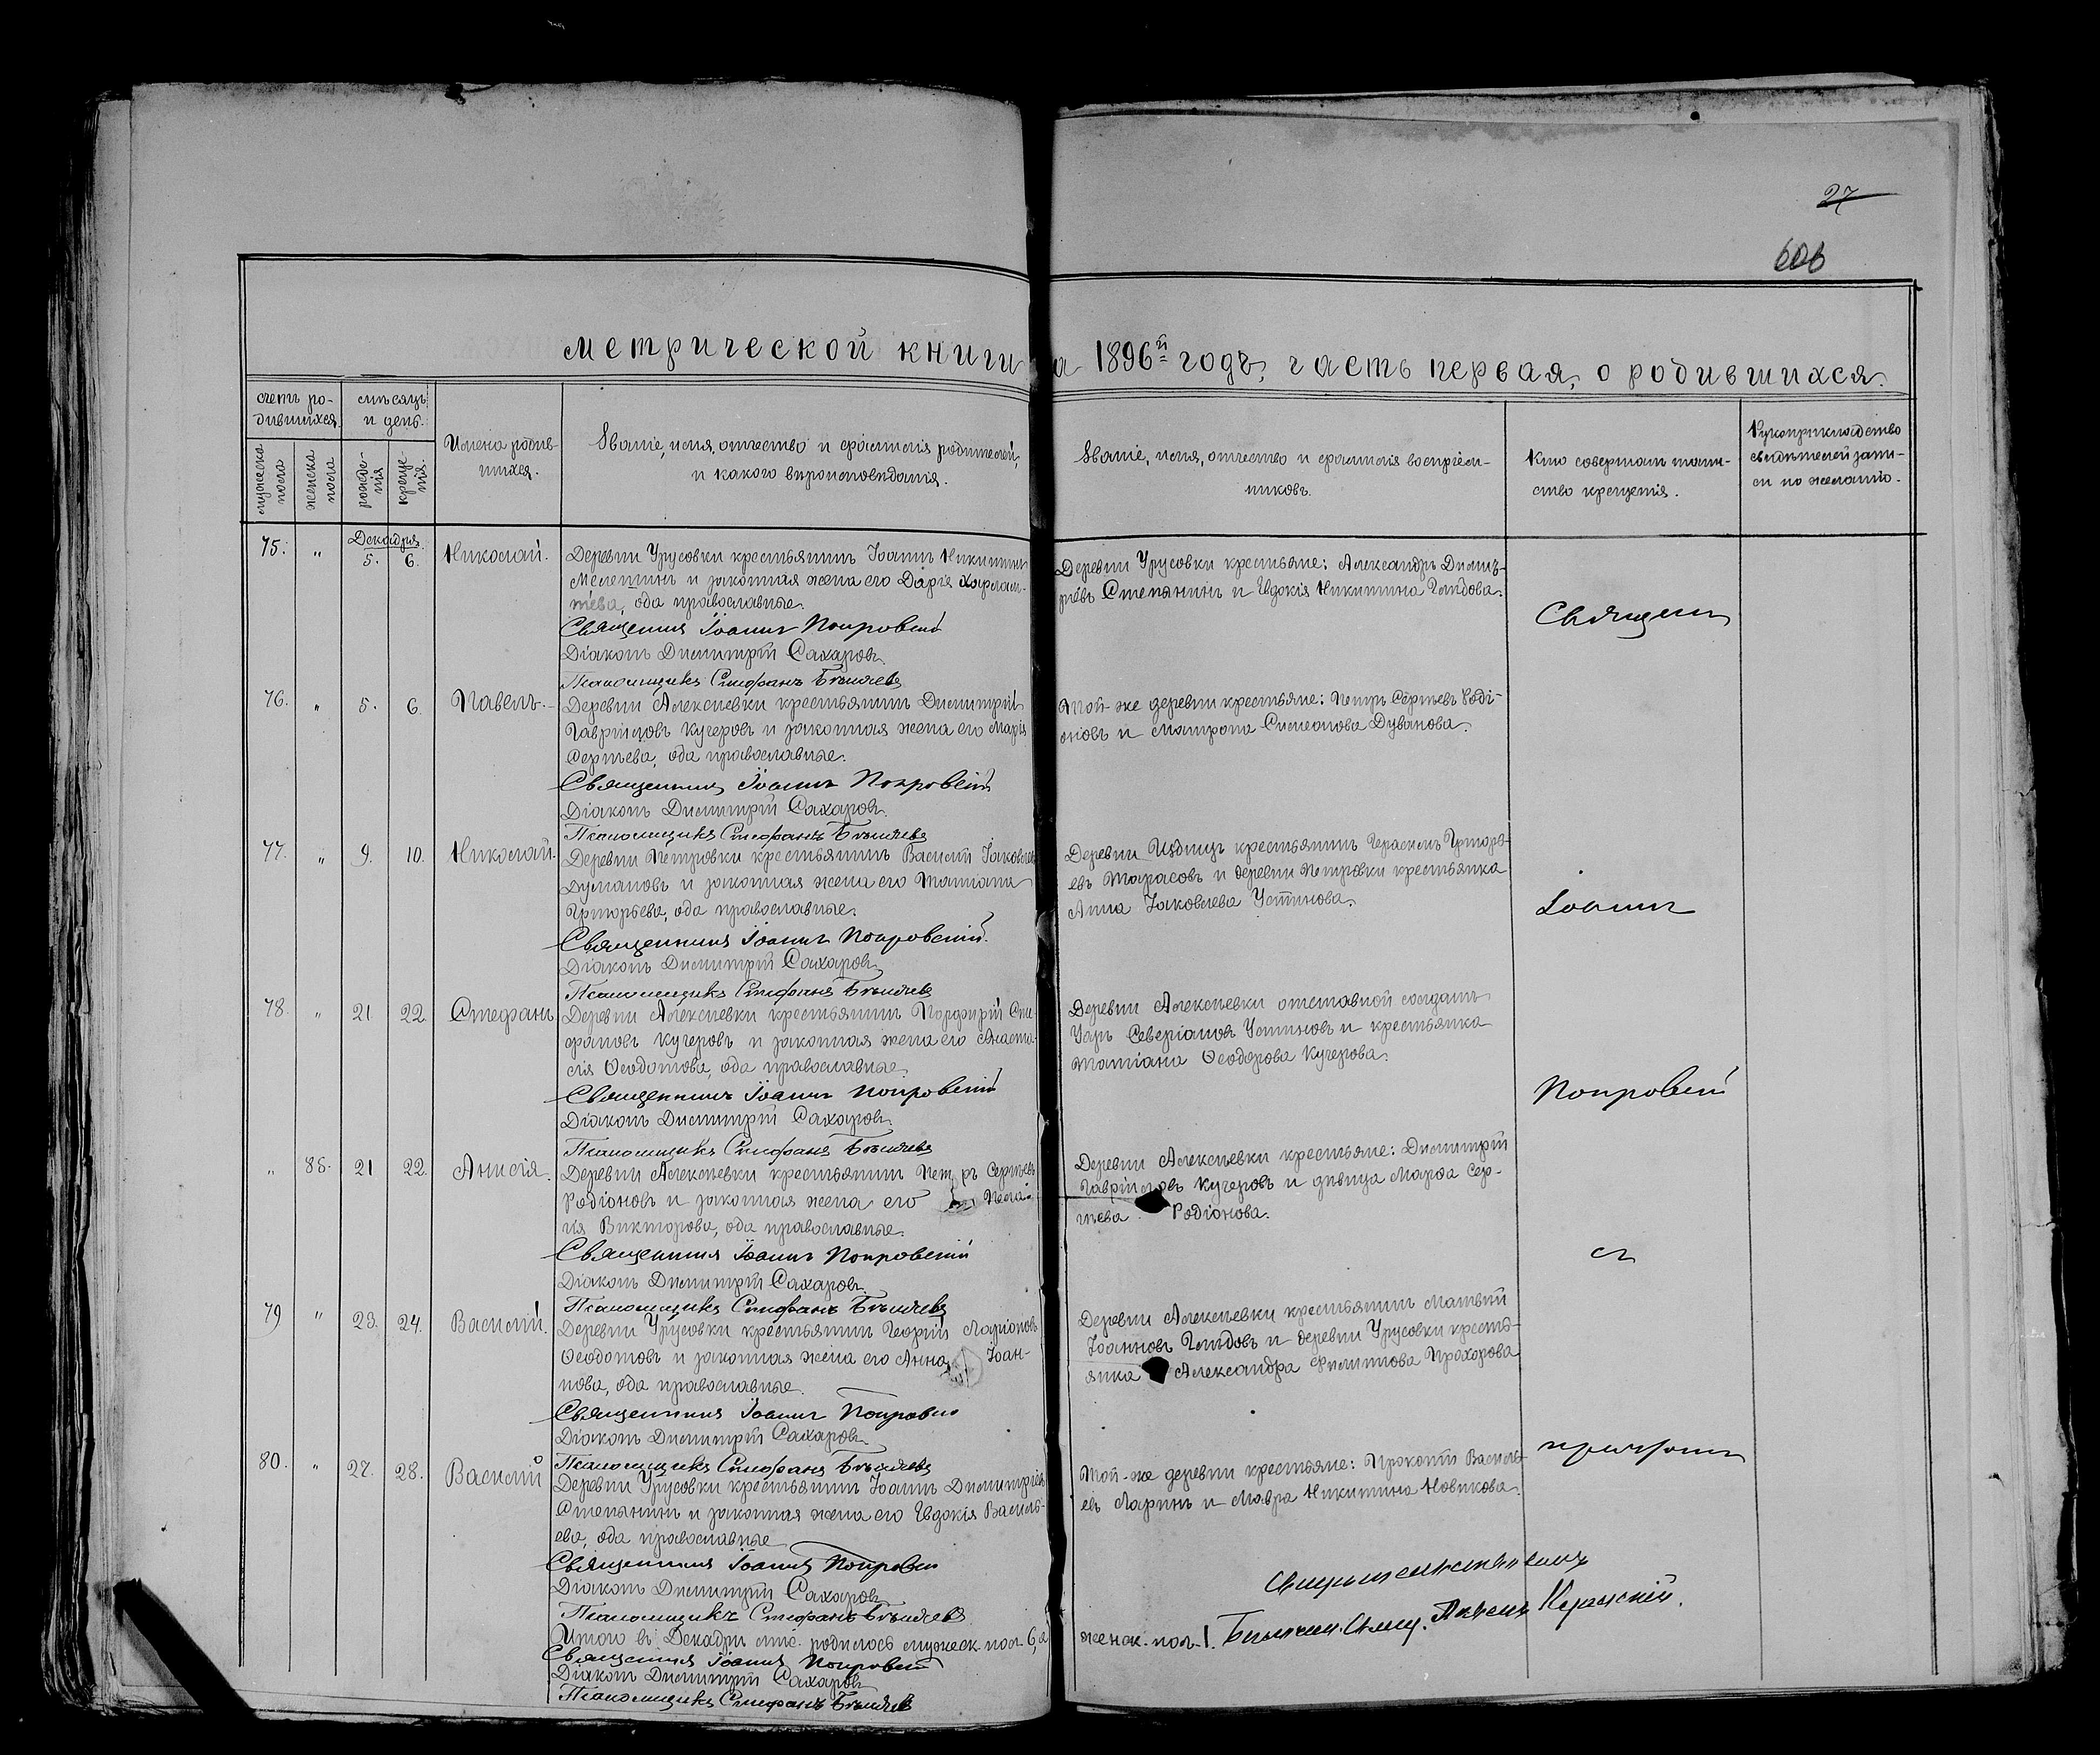 27
606
метрической книги
а 1896й годъ, часть первая, о родившихся.
счетъ ро-
дившихся.
мѣсяцъ
и день.
мужеска
пола
женска
пола
рожде-
нія
креще-
нія.
Имена родив-
шихся.
Званіе, имя, отчество и фамилія родителей,
и какого вѣроисповѣданія.
Званіе, имя, отчество и фамилія воспріем-
никовъ.
Кто совершалъ таин-
ство крещенія.
Рукоприкладство
свидѣтелей запи-
си по желанію.
Декабря
75. " 5. 6. Николай.
Деревни Урусовки крестьянинъ Іоаннъ Никитинъ
Мелешинъ и законная жена его Дарія Харлам-
піева, оба православные.
Священникъ Іоаннъ Покровскій
Діаконъ Димитрій Сахаровъ.
Псаломщикъ Стефанъ Бѣляевъ
Деревни Урусовки крестьяне: Александръ Димит-
ріевъ Степанинъ и Евдокія Никитина Глѣбова.
76. " 5. 6. Павелъ.
Деревни Алексѣевки крестьянинъ Димитрій
Гавріиловъ Кучеровъ и законная жена его Марія
Сергѣева, оба православные.
Священникъ Іоаннъ Покровскій
Діаконъ Димитрій Сахаровъ.
Псаломщикъ Стефанъ Бѣляевъ
Той-же деревни крестьяне: Петръ Сергѣевъ Роді-
оновъ и Матрона Симеонова Дуванова.
77. " 9. 10. Николай.
Деревни Петровки крестьянинъ Василій Іаковлевъ
Думановъ и законная жена его Татіана
Григорьева, оба православные.
Священникъ Іоаннъ Покровскій.
Діаконъ Димитрій Сахаровъ
Псаломщикъ Стефанъ Бѣляевъ
крестьянинъ Герасимъ Григорь-
евъ Тарасовъ и деревни Петровки крестьянка
Анна Іаковлева Устинова.
78. " 21 22. Стефанъ.
Деревни Алексѣевки крестьянинъ Порфирій Сте-
фановъ Кучеровъ и законная жена его Анаста-
сія Ѳеодотова, оба православные.
Священникъ Іоаннъ Покровскій
Діаконъ Димитрій Сахаровъ.
Псаломщикъ Стефанъ Бѣляевъ
Деревни Алексѣевки отставной солдатъ
Уаръ Северіановъ Устиновъ и крестьянка
Татіана Ѳеодорова Кучерова.
" 85. 21 22. Анисія.
Деревни Алексѣевки крестьянинъ Петръ Сергѣевъ
Родіоновъ и законная жена его Пела-
гія Викторова, оба православные.
Священникъ Іоаннъ Покровскій
Діаконъ Димитрій Сахаровъ.
Псаломщикъ Стефанъ Бѣляевъ
Деревни Алексѣевки крестьяне: Димитрій
Гавріиловъ Кучеровъ и дѣвица Марѳа Сер-
гѣева Родіонова.
79 " 23. 24. Василій.
Деревни Урусовки крестьянинъ Георгій Ларіоновъ
Ѳеодотовъ и законная жена его Анна Іоан-
нова, оба православные.
Священникъ Іоаннъ Покровскій
Діаконъ Димитрій Сахаровъ.
Псаломщикъ Стефанъ Бѣляевъ
Деревни Алексѣевки крестьянинъ Матвѣй
Іоанновъ Глѣбовъ и деревни Урусовки кресть-
янка Александра Филиппова Прохорова
80. " 27. 28. Василій
Деревни Урусовки крестьянинъ Іоаннъ Димитріевъ
Степанинъ и законная жена его Евдокія Василь-
ева, оба православные
Священникъ Іоаннъ Покровскій
Діаконъ Димитрій Сахаровъ
Псаломщикъ Стефанъ Бѣляевъ
Той-же деревни крестьяне: Прокопій Василь-
евъ Ларинъ и Мавра Никитина Новикова.
Священ
Іоаннъ
Покровскій
съ
причтомъ
Итого въ Декабрѣ мѣс. родилось мужеск. пол. 6, а
женск. пол. 1.
Священникъ Іоаннъ Покровскій
Діаконъ Димитрій Сахаровъ
Псаломщикъ Стефанъ Бѣляевъ